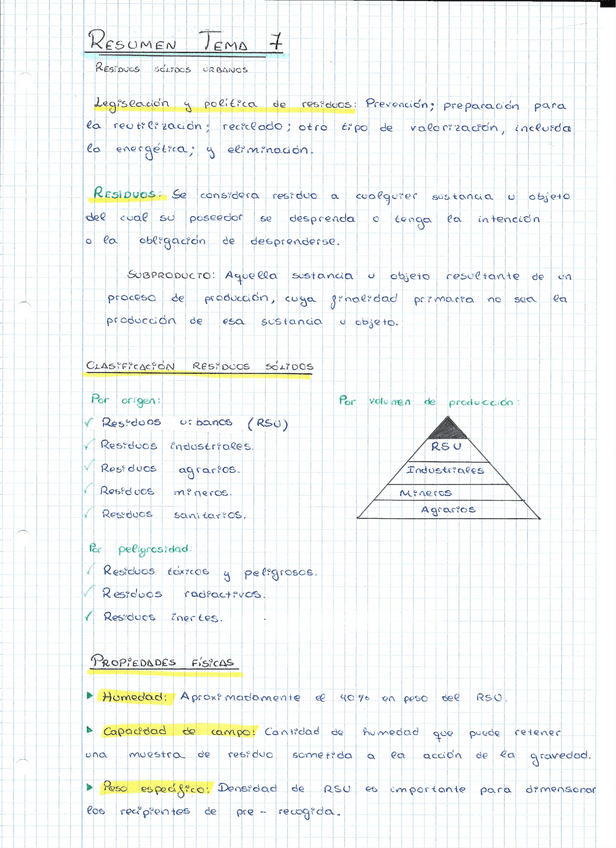 RESUMEN TEMA 7
RESIDUOS SÓLIDOS URBANOS
Legislación y política de residuos: Prevención; preparación para
la reutilización; reciclado; otro tipo de valorización, incluida
la energética; y eliminación.
RESIDUOS: Se considera residuo a cualquier sustancia u objeto
del cual su poseedor se desprenda o tenga la intención
o la obligación de desprenderse.
SUBPRODUCTO: Aquella sustancia u objeto resultante de un
proceso de producción, cuya finalidad primaria no sea la
producción de esa sustancia u objeto.
CLASIFICACIÓN RESIDUOS SÓLIDOS
Por origen:
✓ Residuos urbanos (RSU)
✓ Residuos industriales.
✓ Residuos agrarios.
✓ Residuos mineros.
✓ Residuos sanitarios.
Por volumen de producción:
RSU
Industriales
Mineros
Agrarios
Por peligrosidad:
✓ Residuos tóxicos y peligrosos.
✓ Residuos radiactivos.
✓ Residuos inertes.
PROPIEDADES FÍSICAS
▶ Humedad: Aproximadamente el 40% en peso del RSU.
▶ Capacidad de campo: Cantidad de humedad que puede retener
una muestra de residuo sometida a la acción de la gravedad.
▶ Peso específico: Densidad de RSU es importante para dimensionar
los recipientes de pre-recogida.